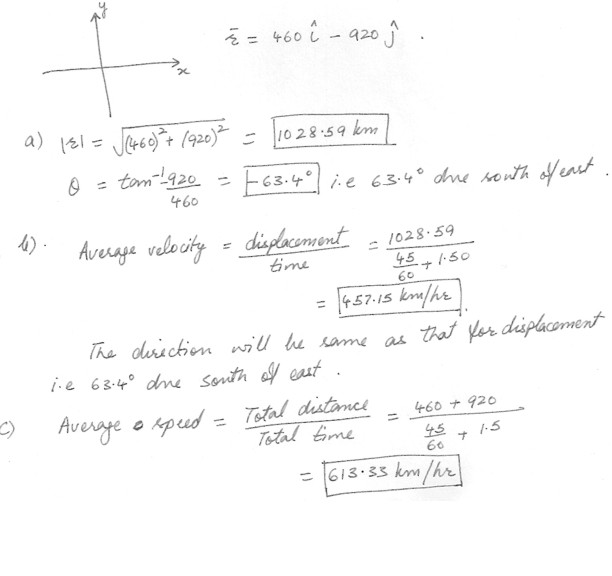 y
r̄ = 460 î - 920 ĵ .
x
a) |r| = √(460)² + (920)² = 1028.59 km
θ = tan⁻¹ -920/460 = -63.4° i.e 63.4° due south of east.
b). Average velocity = displacement/time = 1028.59/(45/60 + 1.50)
= 457.15 km/hr.
The direction will be same as that for displacement
i.e 63.4° due south of east.
c) Average speed = Total distance/Total time = 460 + 920/(45/60 + 1.5)
= 613.33 km/hr